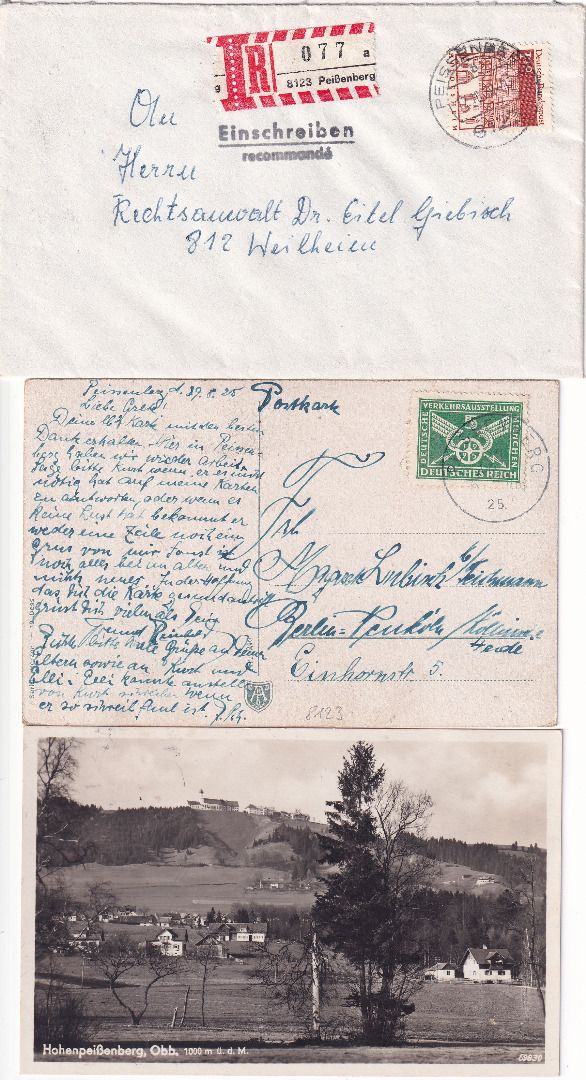 R
077 a
8123 Peißenberg
Einschreiben
recommandé
PEISSENBERG
An
Herrn
Rechtsanwalt Dr. Eitel Giebisch
812 Weilheim
Peissenberg d. 27.8.25
Postkarte
Liebe Grete!
Deine lb. Karte mit den besten
Dank erhalten. Hier in Peissen-
berg haben wir wieder Arbeit.
Sage bitte Kurt wenn er es nicht
nötig hat auf meine Karten
zu antworten, oder wenn er
keine Lust hat bekommt er
weder eine Zeile noch ein
Grus von mir. Sonst ist
noch alles beim alten und
nichts neues. In der Hoffnung
das dir die Karte gesund antrifft
grüst Dich vielmals Dein
Freund
Bitte viele Grüße an Deine
Eltern sowie an Kurt und
Elli. Elli könnte anstelle
von Kurt schreiben wenn
er so schreibfaul ist.
DEUTSCHE VERKEHRSAUSSTELLUNG MÜNCHEN
DEUTSCHES REICH
BERG
25.
Frl.
Berlin-Neukölln
Einhornstr 5.
8123
Hohenpeißenberg, Obb. 1000 m ü. d. M.
59830